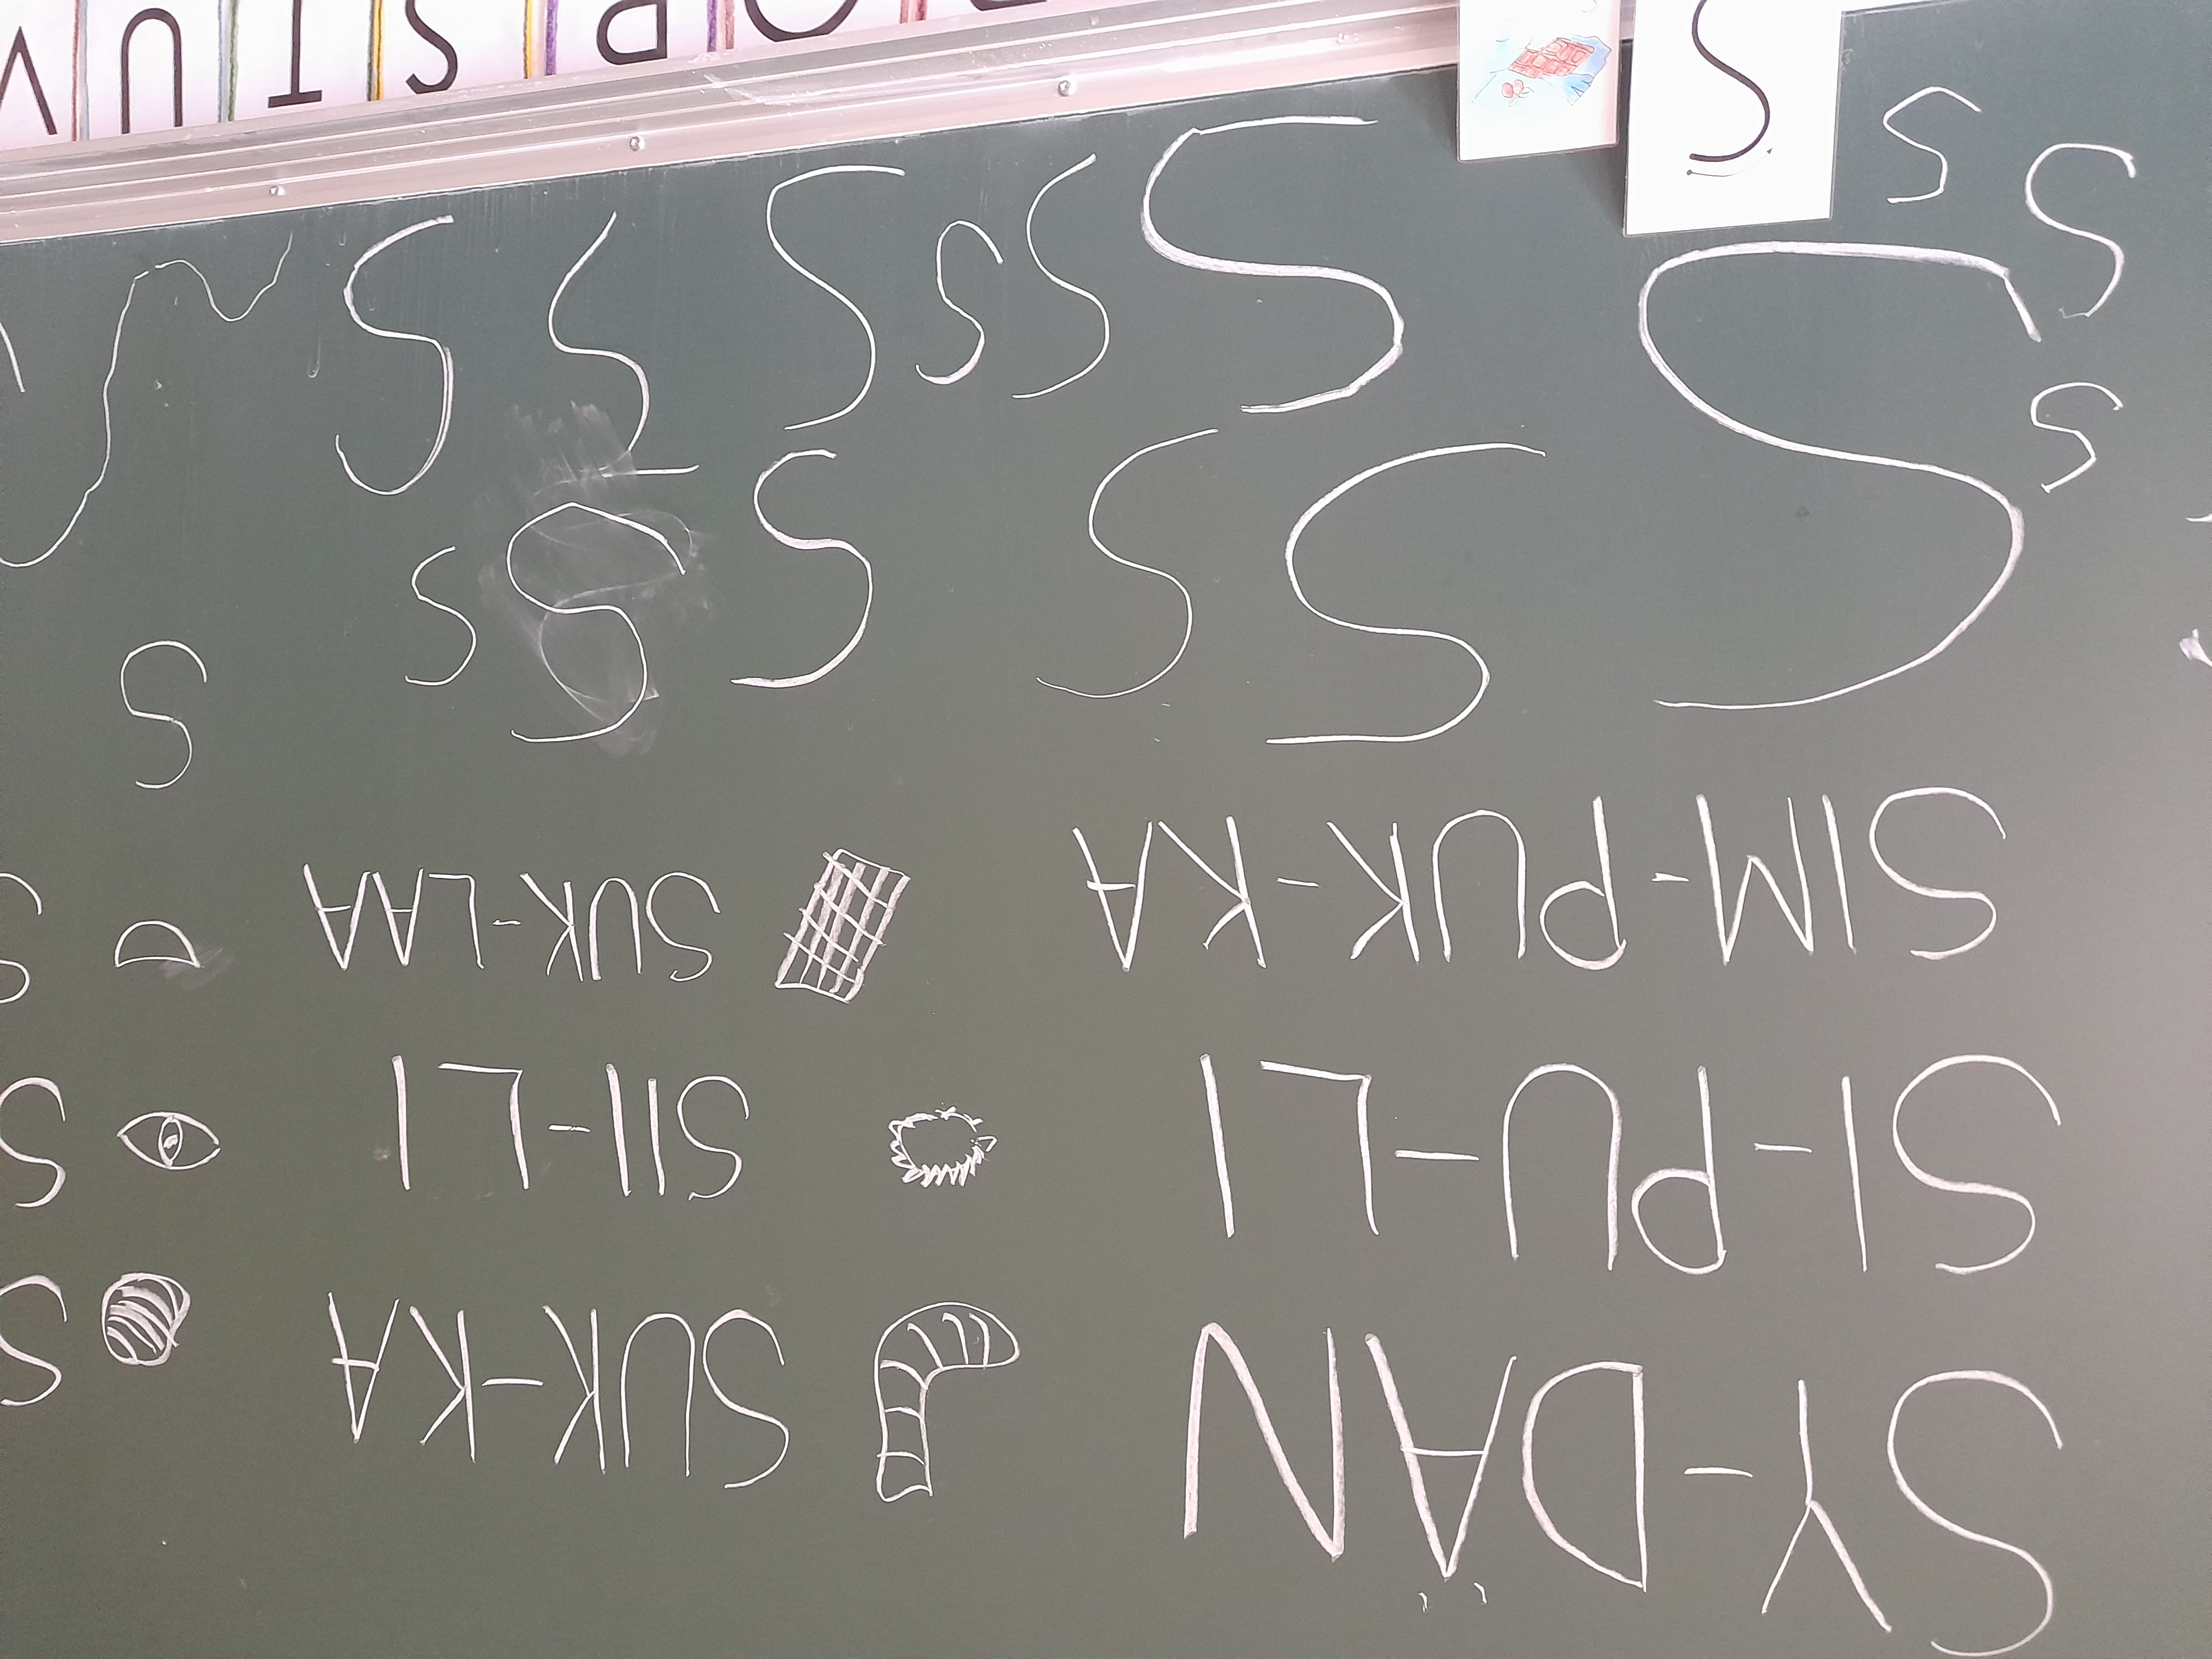 SY-DÄN SUK-KA S
SI-PU-LI SII-LI S
SIM-PUK-KA SUK-LAA S
S S S S S S S
S S S S S S S S
S S S
R S T U V